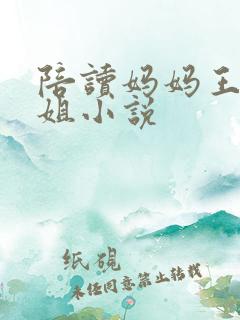 陪讀妈妈王
姐小説
纸硯
未任同意禁止转载